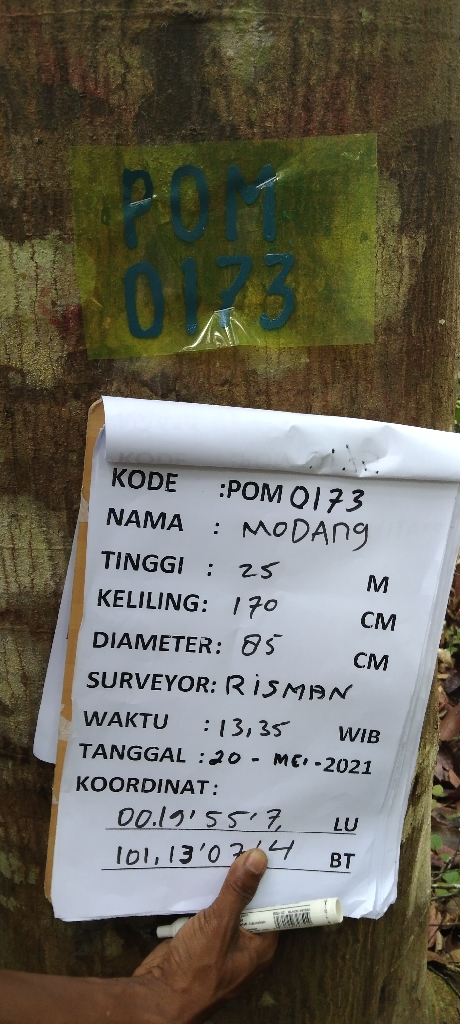 POM
0173
KODE :POM 0173
NAMA : MODANG
TINGGI : 25 M
KELILING: 170 CM
DIAMETER: 85 CM
SURVEYOR: RISMAN
WAKTU :13,35 WIB
TANGGAL :20 - MEI -2021
KOORDINAT:
00.19'55'7, LU
101,13'07'4 BT